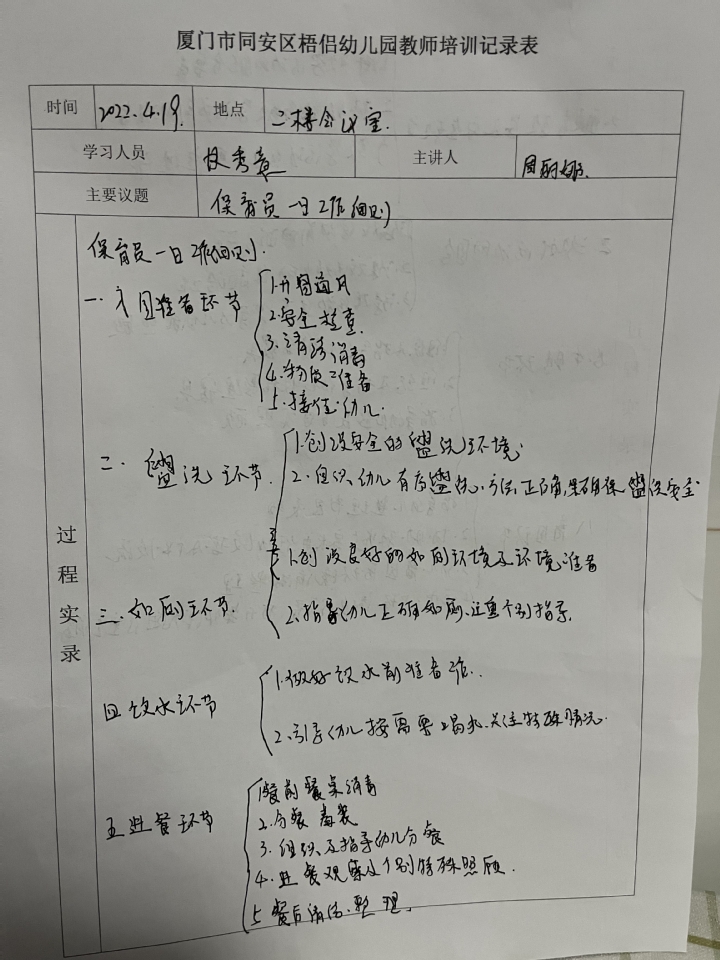 厦门市同安区梧侣幼儿园教师培训记录表
时间 2022.4.19. 地点 二楼会议室.
学习人员 秀 主讲人 周丽娜.
主要议题 保育员一日工作细则
过程实录
保育员一日工作细则.
一. 入园准备环节
1.开窗通风
2.安全检查.
3.清洁消毒
4.物质准备
5.接待幼儿.
二. 盥洗环节.
1.创设安全的盥洗环境.
2.组织幼儿有序盥洗.方法正确,确保盥洗安全
三.如厕环节.
1.创设良好的如厕环境及环境准备
2.指导幼儿正确如厕.注重个别指导.
四 饮水环节
1.做好饮水前准备工作.
2.引导幼儿按需要喝水.关注特殊情况.
五 进餐环节
1餐前餐桌消毒
2.分发
3.组织及指导幼儿分餐
4.进餐观察及个别特殊照顾.
5餐后清洁.整理.